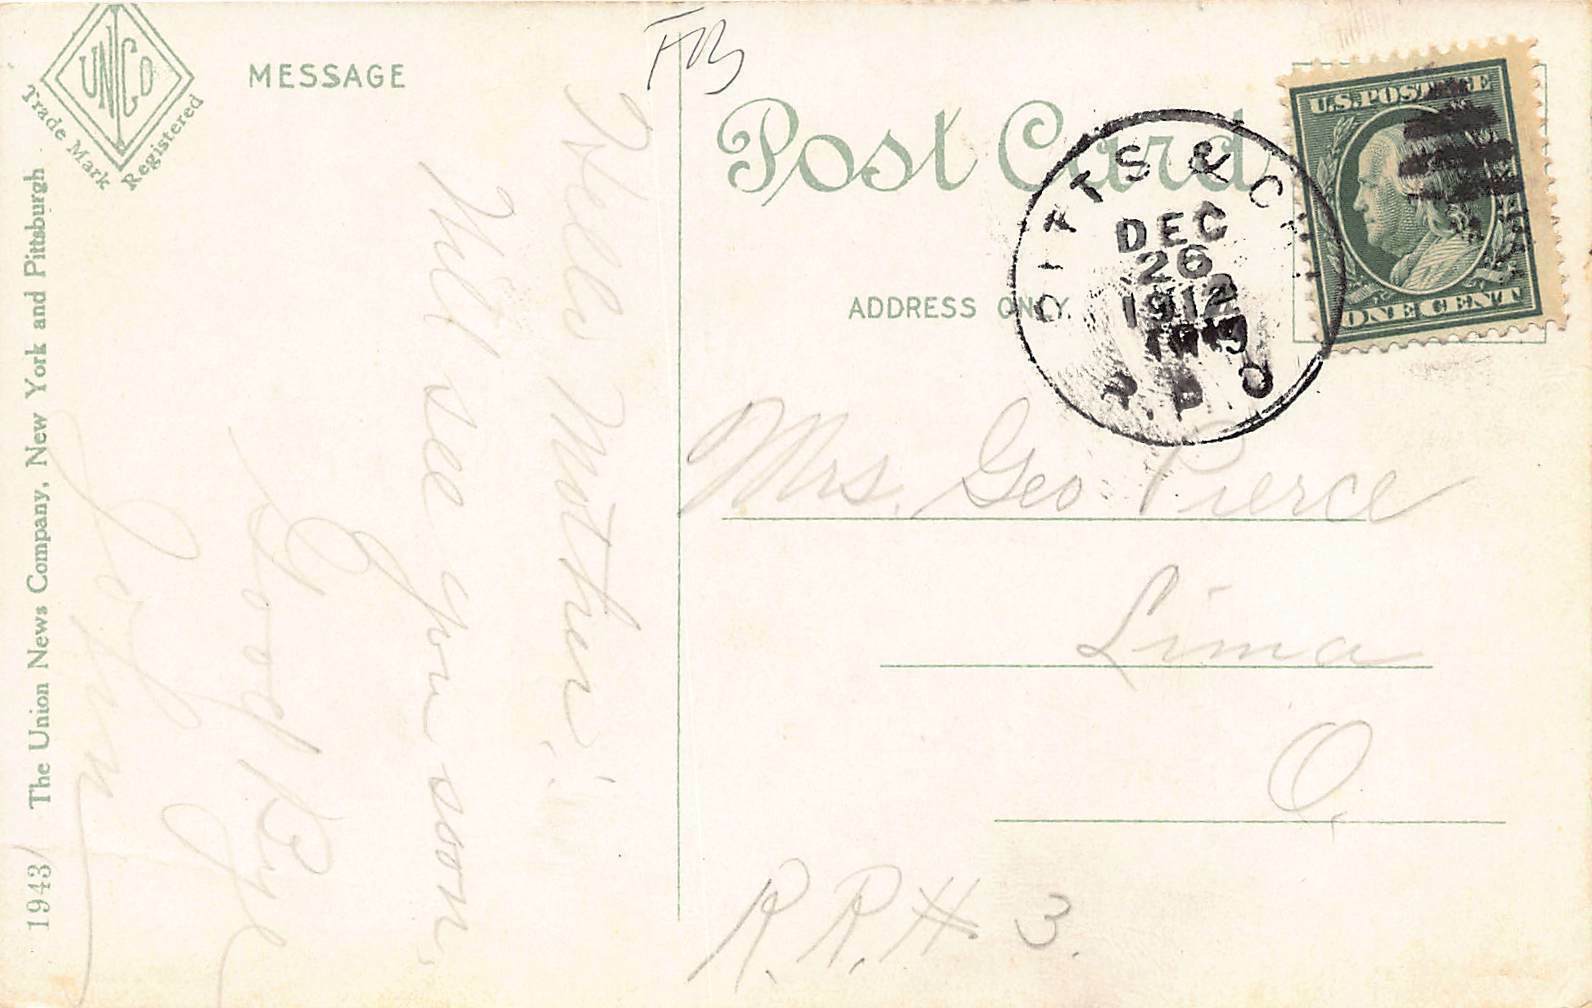 UNCO
Trade Mark Registered
MESSAGE
Post Card
ADDRESS ONLY.
U.S. POSTAGE
ONE CENT
PITTS & CHI
DEC
26
1912
R.P.O
Hello Mother:
Will see you soon,
Good Bye
John
Mrs. Geo Pierce
Lima
O.
R.R.# 3.
1943 The Union News Company, New York and Pittsburgh